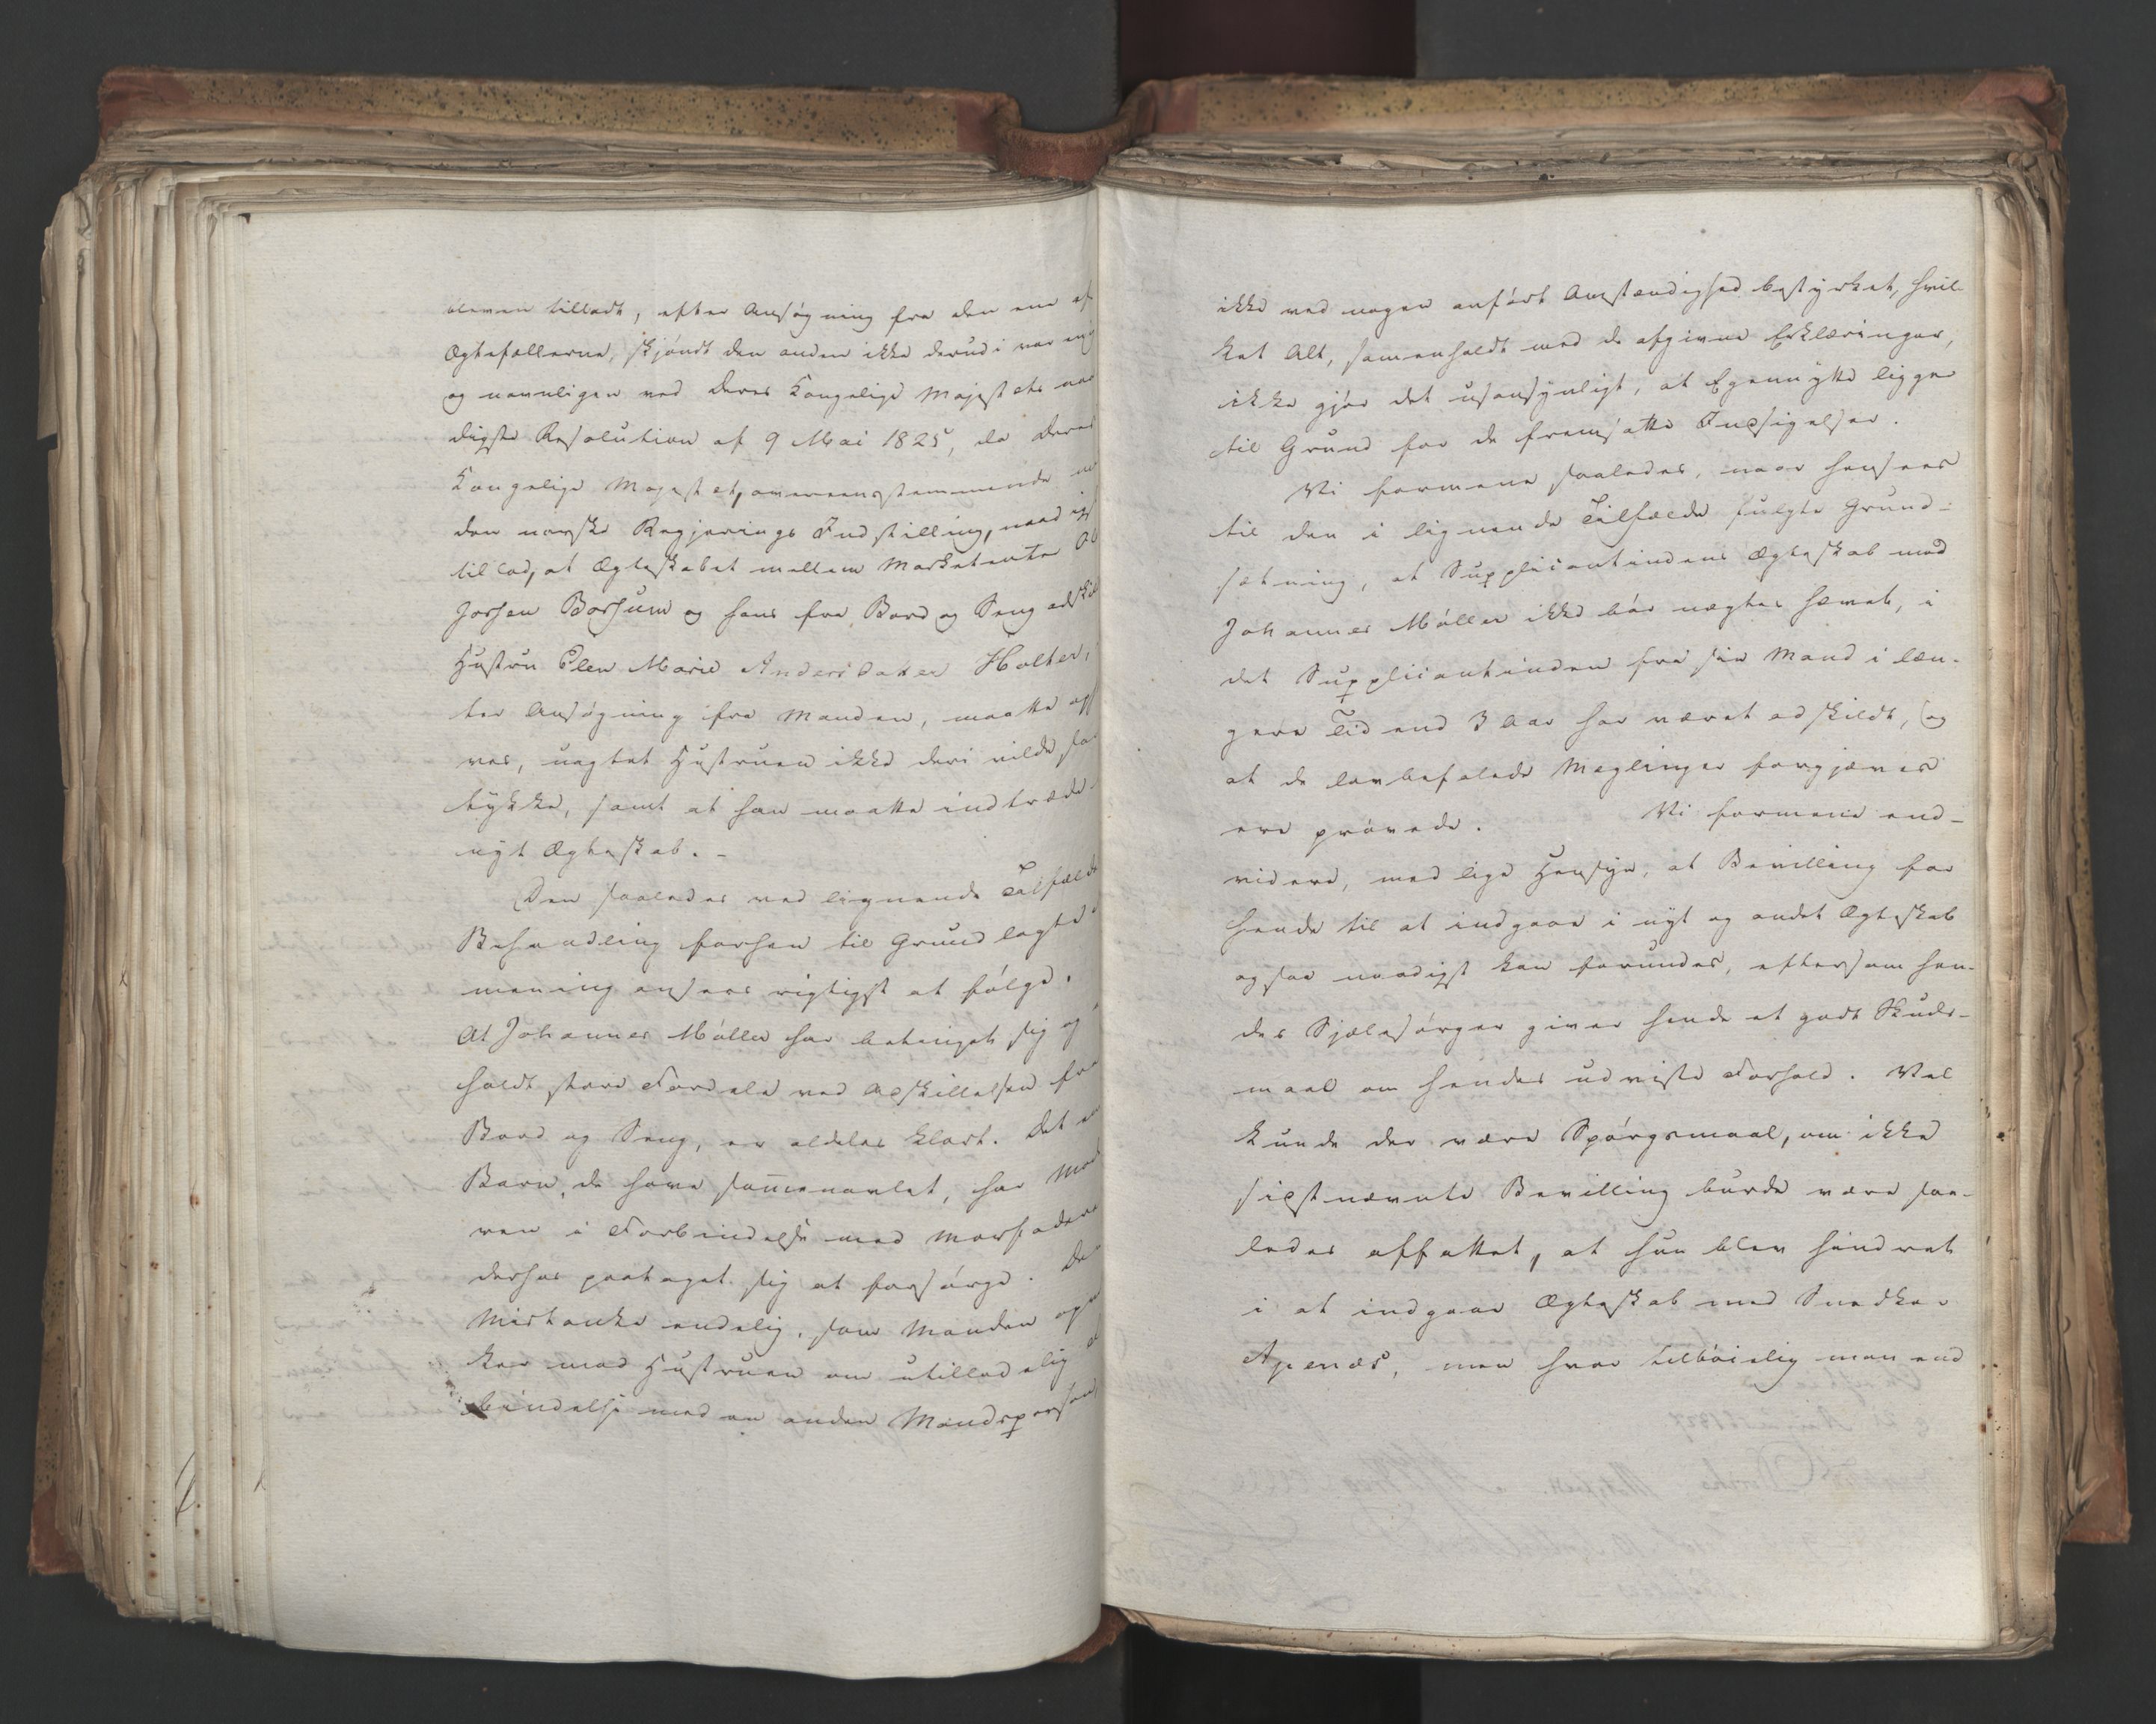 bleven tilladt, efter Ansøgning fra den ene af
Ægtefællerne, skjøndt den anden ikke derudi var enig
og navnligen ved Deres Kongelige Majestets naa
digste Resolution af 9 Mai 1825, da Deres
Kongelige Majestet, overeensstemmende m
den norske Regjerings Indstilling, naadigst
tillod, at Ægteskabet mellem Marketenter Ab
Jorsen Borsum og hans fra Bord og Seng adskil
Hustru Elen Marie Andersdatter Holter,
ter Ansøgning fra Manden, maatte ophæ
ves, uagtet Hustruen ikke deri vilde sam
tykke, samt at han maatte indtræde
nyt Ægteskab. -
Den saaledes ved lignende Tilfælde
Behandling forhen til Grund lagte
mening ansees rigtigst at følge.
At Johannes Møller har betinget sig og
holdt store Fordele ved Adskillelsen fra
Bord og Seng, er aldeles klart. Det e
Barn, de have sammenavlet, har Mod
ren i Forbindelse med Morfaderen
derhos paataget sig at forsørge. De
Mistanke endelig, som Manden op
kas mod Hustruen om utilladelig
bindelse med en anden Mandsperson,
ikke ved nogen anført Omstændighed bestyrket, hvil-
ket Alt, sammenholdt med de afgivne Erklæringer,
ikke gjør det usandsynligt, at Egennytte ligger
til Grund for de fremsatte Indsigelser.
Vi formene saaledes, naar hensees
til den i lignende Tilfælde fulgte Grund-
sætning, at Supplicantindens Ægteskab med
Johannes Møller ikke bør nægtes hævet, i
det Supplicantinden fra sin Mand i læn-
gere Tid end 3 Aar har været adskildt, og
at de lovbefalede Meglinger forgjæves
ere prøvede. Vi formene end-
videre, med lige Hensyn, at Bevilling for
hende til at indgaae i nyt og andet Ægteskab
ogsaa naadigst kan forundes, eftersom hen-
des Sjælesørger giver hende et godt Skuds-
maal om hendes udviste Forhold. Vel
kunde der være Spørgsmaal, om ikke
sidstnævnte Bevilling burde være saa-
ledes affattet, at hun blev hindret
i at indgaae Ægteskab med Snedker
Apenæs, men hvor tilbøielig man end